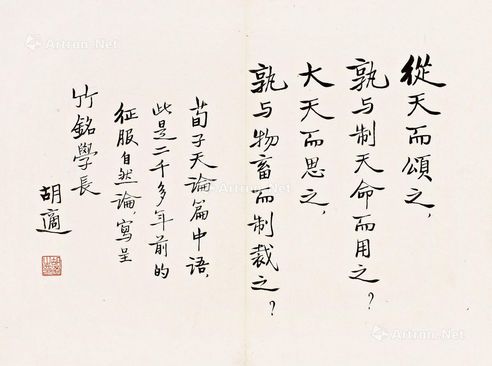 從天而頌之，
孰与制天命而用之？
大天而思之，
孰与物畜而制裁之？
荀子天論篇中語，
此是二千多年前的
征服自然論，寫呈
竹銘學長
胡適
Artron.Net
Artron.Net
Artron.Net